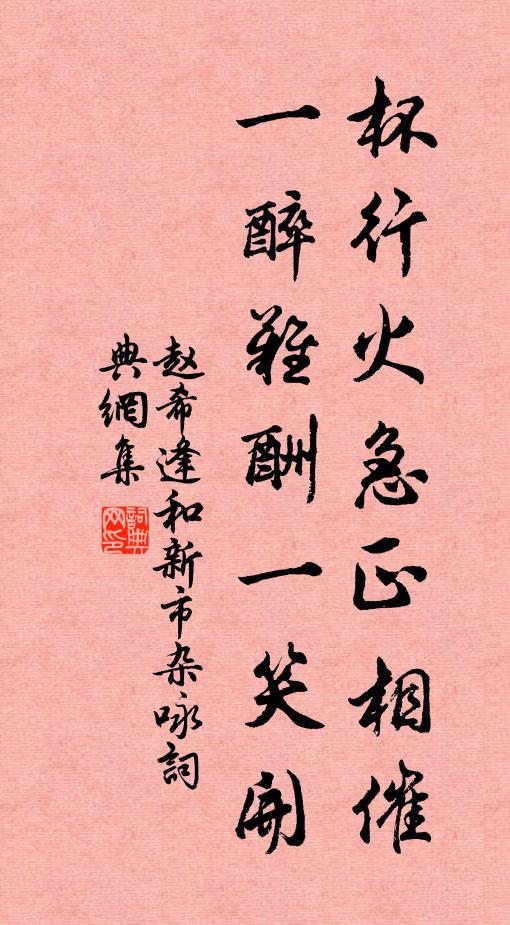 杯行火急正相催
一醉難酬一笑開
赵希逢和新市杂咏詞
典網集
詞典网印